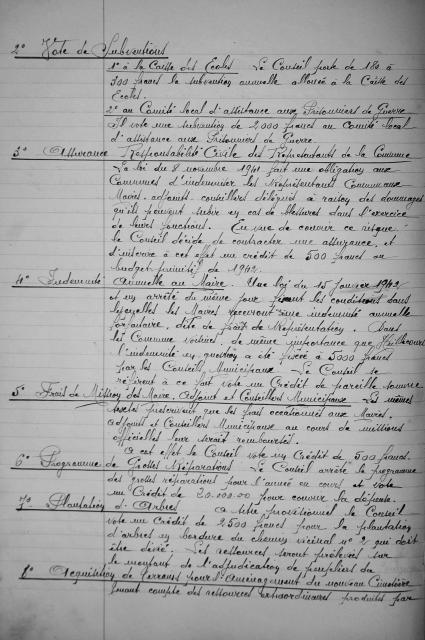 2° Vote de Subventions
1° à la Caisse des Ecoles Le Conseil porte de 180 à
300 francs la subvention annuelle allouée à la Caisse des
Ecoles.
2° au Comité local d'assistance aux Prisonniers de Guerre
Il vote une subvention de 2,000 francs au Comité local
d'assistance aux Prisonniers de Guerre.
3° Assurance Responsabilité Civile des Représentants de la Commune
La loi du 8 novembre 1941 fait une obligation aux
Communes d'indemniser les Représentants Communaux
Maires, adjoints, conseillers délégués à raison des dommages
qu'ils peuvent subir en cas de blessures dans l'exercice
de leurs fonctions. En vue de couvrir ce risque
le Conseil décide de contracter une assurance, et
d'inscrire à cet effet un crédit de 500 francs au
budget primitif de 1942.
4° Indemnité Annuelle au Maire. Une loi du 15 janvier 1942
et un arrêté du même jour fixent les conditions dans
lesquelles les Maires recevront une indemnité annuelle
forfaitaire, dite de frais de Représentation. Dans
les Communes voisines, de même importance que
l'indemnité en question a été fixée à 5000 francs
par les Conseils Municipaux. Le Conseil se
référant à ce fait vote un Crédit de pareille somme
5° Frais de Mission des Maire, Adjoint et Conseillers Municipaux Les mêmes
textes prescrivent que les frais occasionnés aux Maires,
Adjoints et Conseillers Municipaux au cours de missions
officielles leur seront remboursés.
A cet effet le Conseil vote un Crédit de 500 francs.
6° Programme de Grosses Réparations. Le Conseil arrête le programme
des grosses réparations pour l'année en cours et vote
un Crédit de 20.000.00 pour couvrir la dépense.
7° Plantation d'Arbres A titre provisionnel le Conseil
vote un Crédit de 2500 francs pour la plantation
d'arbres en bordure du chemin vicinal n° 2 qui doit
être dévié. Les ressources seront prélevées sur
le montant de l'adjudication de peupliers du
8° Acquisition de terrains pour l'Aménagement du nouveau Cimetière
tenant compte des ressources extraordinaires produites par